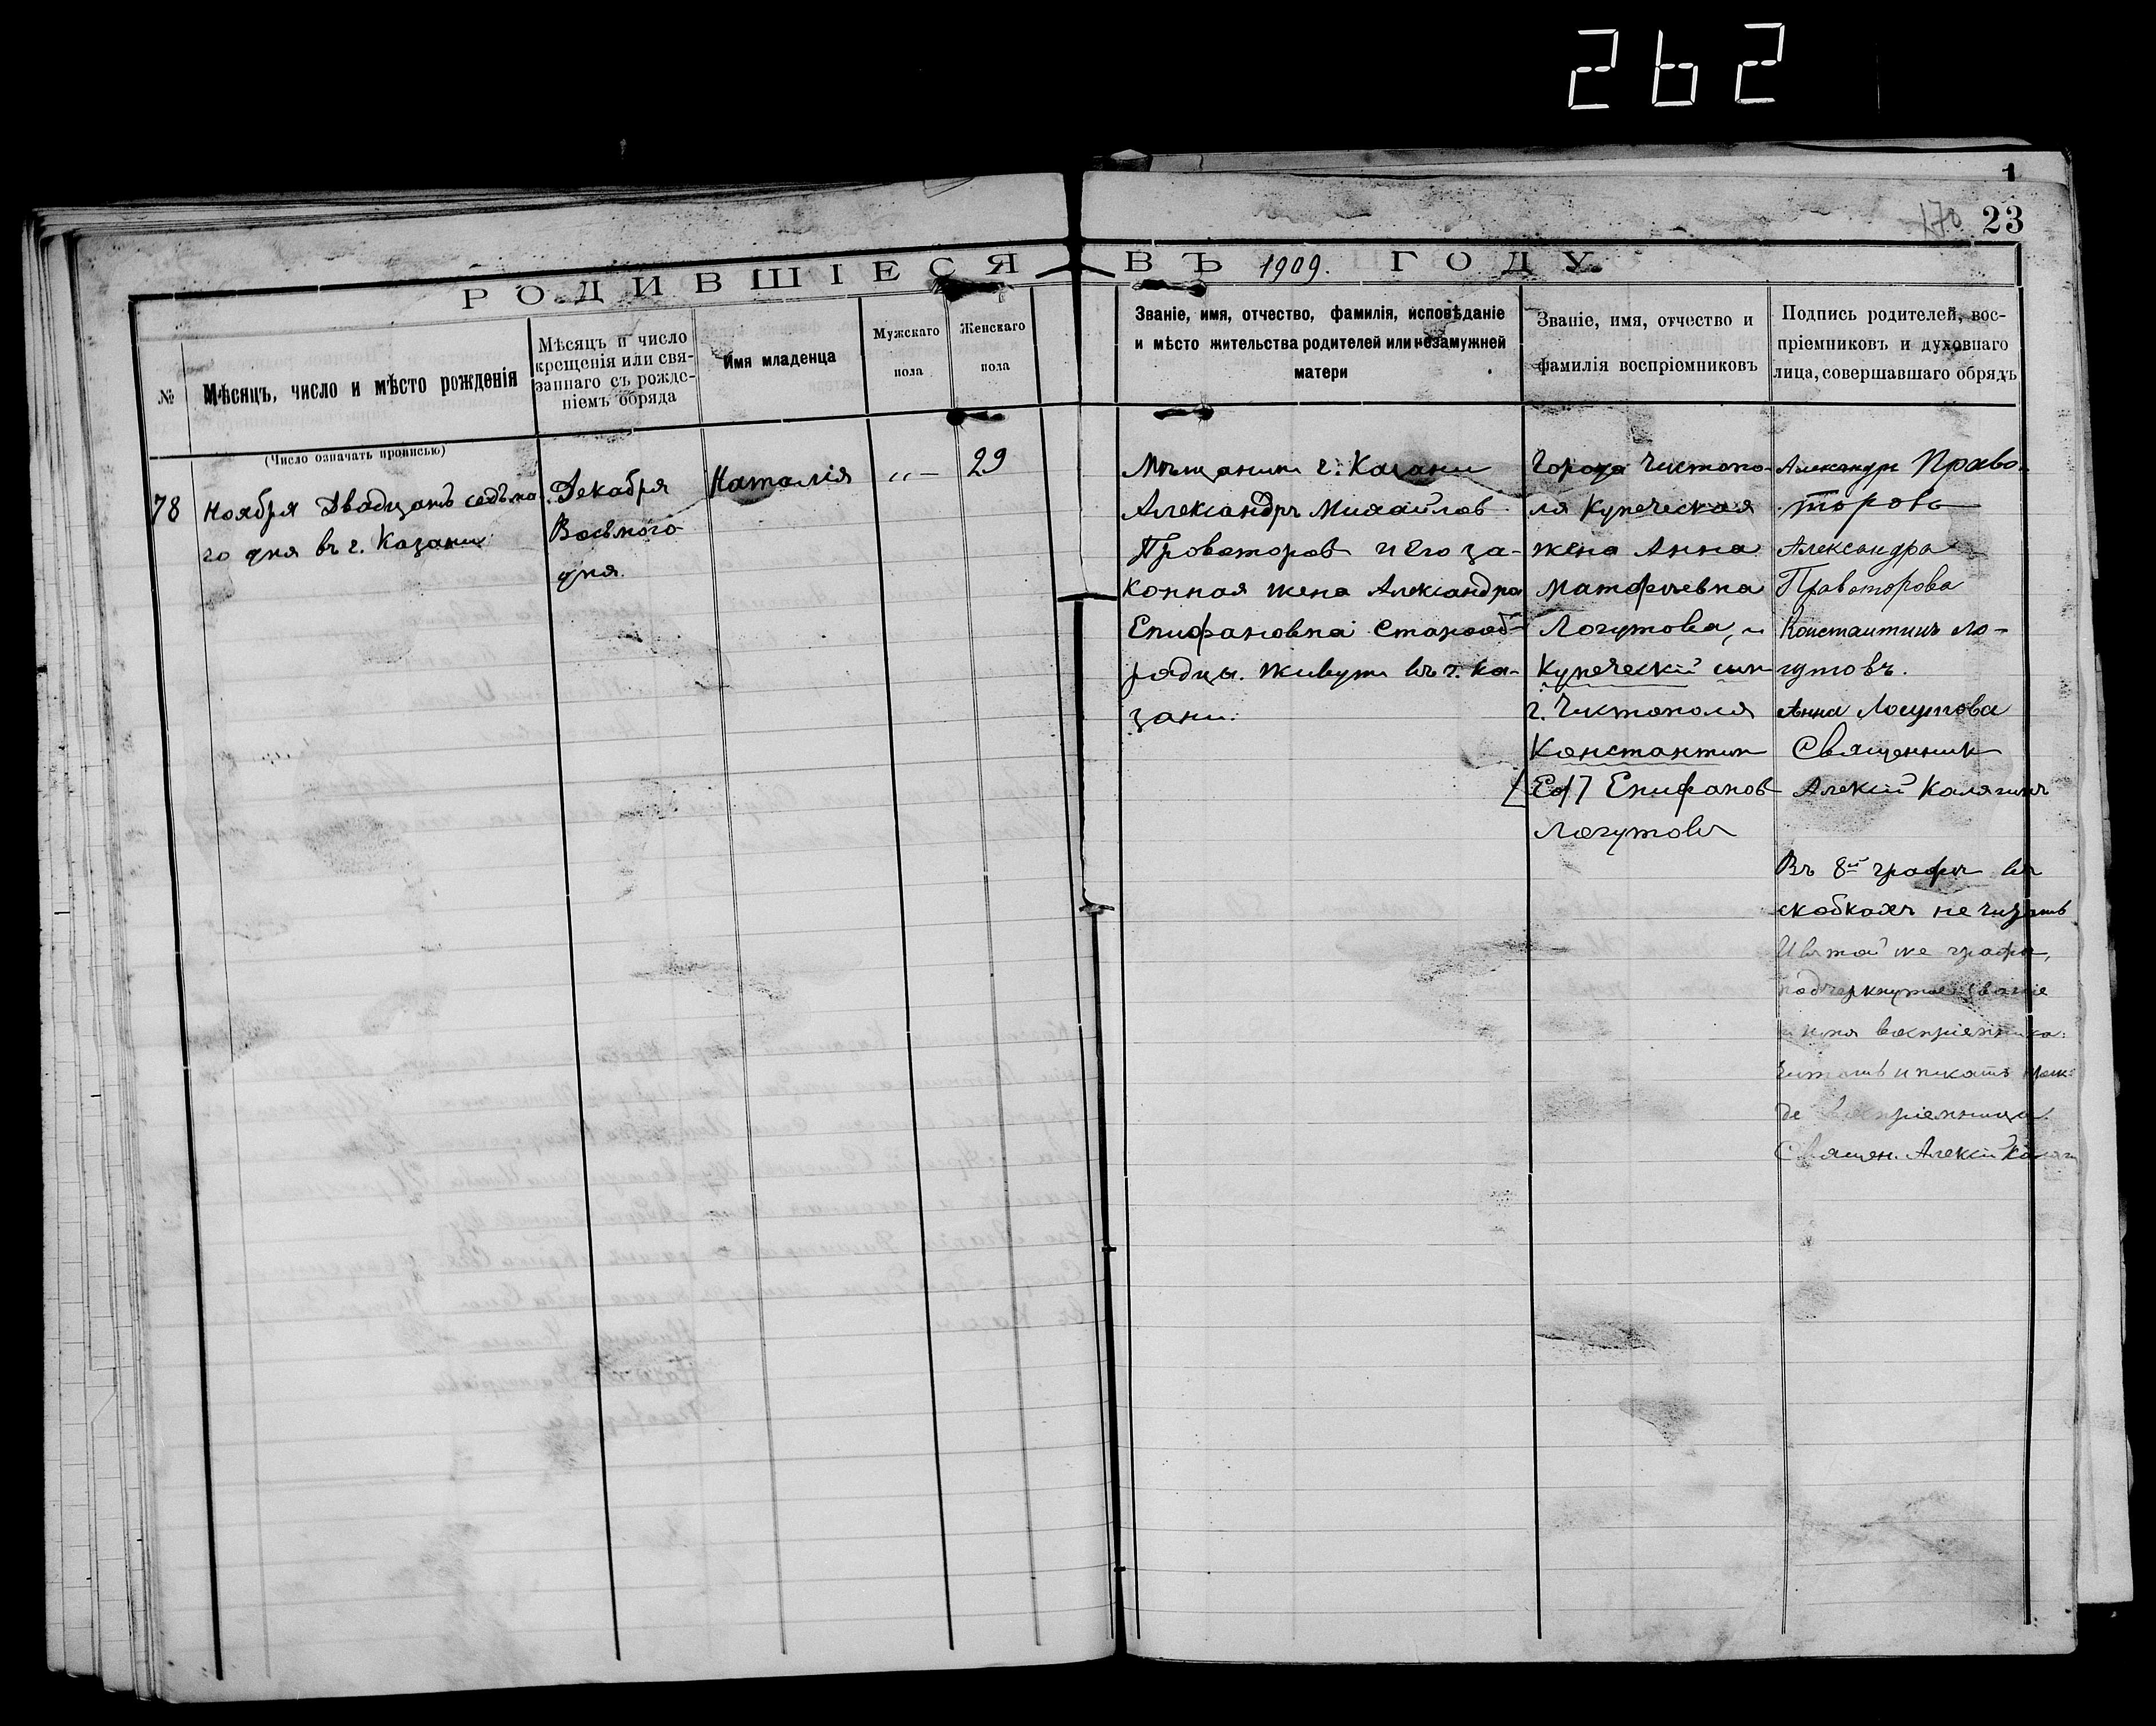 262
1
170 23
РОДИВШІЕСЯ ВЪ 1909. ГОДУ.
№
Мѣсяцъ, число и мѣсто рожденія
(Число означать прописью)
Мѣсяцъ и число
крещенія или свя-
заннаго съ рожде-
ніемъ обряда
Имя младенца
Мужскаго
пола
Женскаго
пола
Званіе, имя, отчество, фамилія, исповѣданіе
и мѣсто жительства родителей или незамужней
матери
Званіе, имя, отчество и
фамилія воспріемниковъ
Подпись родителей, вос-
пріемниковъ и духовнаго
лица, совершавшаго обрядъ
78
Ноября Двадцать седьма-
го дня въ г. Казани
Декабря
Восьмого
дня.
Наталія
„ —
29
Мѣщанинъ г. Казани
Александръ Михайлов
Провоторов и его за-
конная жена Александра
Епифановна старооб-
рядцы. Живутъ въ г. Ка-
зани.
Города Чистопо-
ля Купеческая
жена Анна
Матфѣевна
Логутова, и
Купеческій сын
г. Чистополя
Константин
[Еф] Епифанов
Логутовъ
Александръ Право-
торовъ
Александра
Правоторова
Константинъ Ло-
гутовъ.
Анна Логутова
Священник
Алексій Калягинъ
Въ 8й графѣ въ
скобкахъ не читать
И в той же графѣ,
подчеркнутое званіе
и имя воспріемника:
Читать и писать преж-
де воспріемницы.
Священ. Алексій Каляги